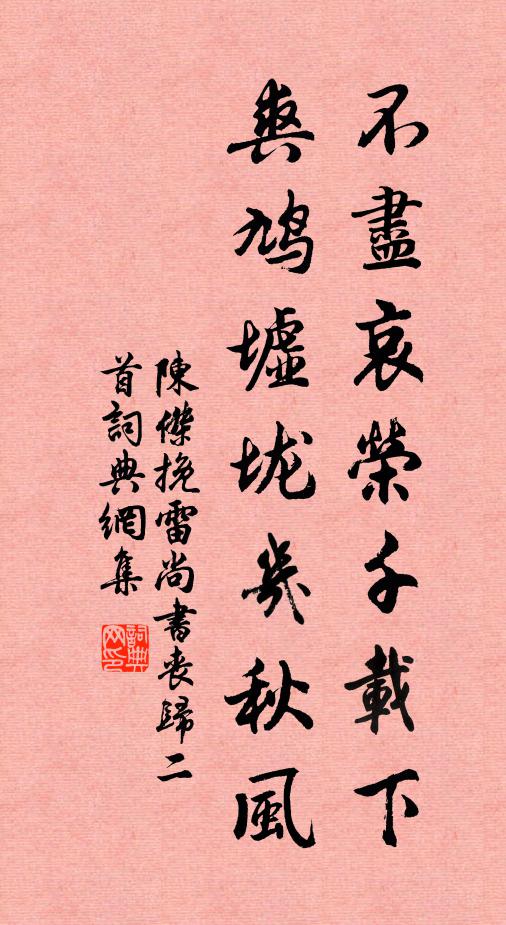 不盡哀榮千載下
爽鳩墟垅几秋風
陳傑挽雷尚書丧歸二
首詞典網集
詞典网印